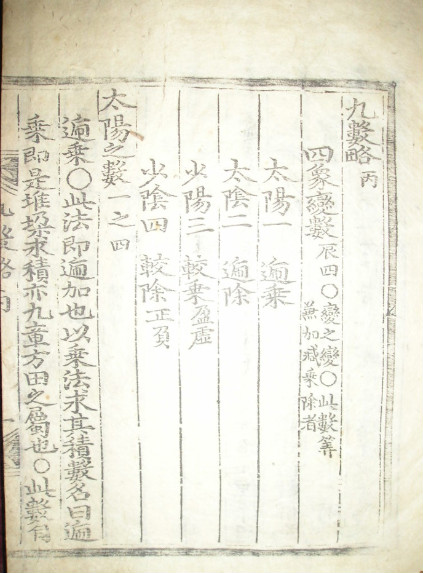 九數略 丙
四象變數 辰四〇變之變〇此數等
兼加減乘除者
太陽一 遍乘
太陰二 遍除
少陽三 較乘盈虛
少陰四 較除正負
太陽之數一之四
遍乘〇此法即遍加也以乘法求其積數名曰遍
乘即是堆垛求積亦九章方田之屬也〇此數有
九數略 丙 一